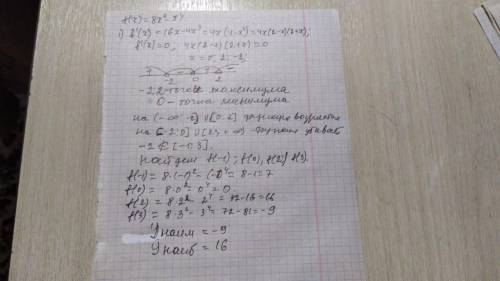 f(x) = 8x² - x⁴
1) f'(x) = 16x - 4x³ = 4x(4-x²) = 4x(2-x)(2+x);
f'(x) = 0, 4x(2-x)(2+x) = 0
x = 0; 2; -2;
+ - + -
-2 0 2
-2; 2 - точки максимума
0 - точка минимума
на (-∞; -2] ∪ [0; 2] функция возрастает
на [-2; 0] ∪ [2; +∞) - функция убывает
-2 ∉ [-1; 3].
Найдем f(-1); f(0), f(2), f(3).
f(-1) = 8·(-1)² - (-1)⁴ = 8-1 = 7
f(0) = 8·0² - 0⁴ = 0
f(2) = 8·2² - 2⁴ = 32-16 = 16
f(3) = 8·3² - 3⁴ = 72 - 81 = -9
Yнаим = -9
Yнаиб = 16